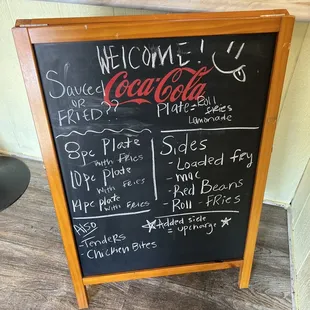 WELCOME!
Coca-Cola
Sauced
OR
FRIED??
Plate = Roll
fries
Lemonade
8pc Plate
with Fries
10pc Plate
with Fries
14pc Plate
with Fries
Sides
- Loaded fry
- mac
- Red Beans
- Roll - FRies
Also
- Tenders
- Chicken Bites
Added side
= upcharge